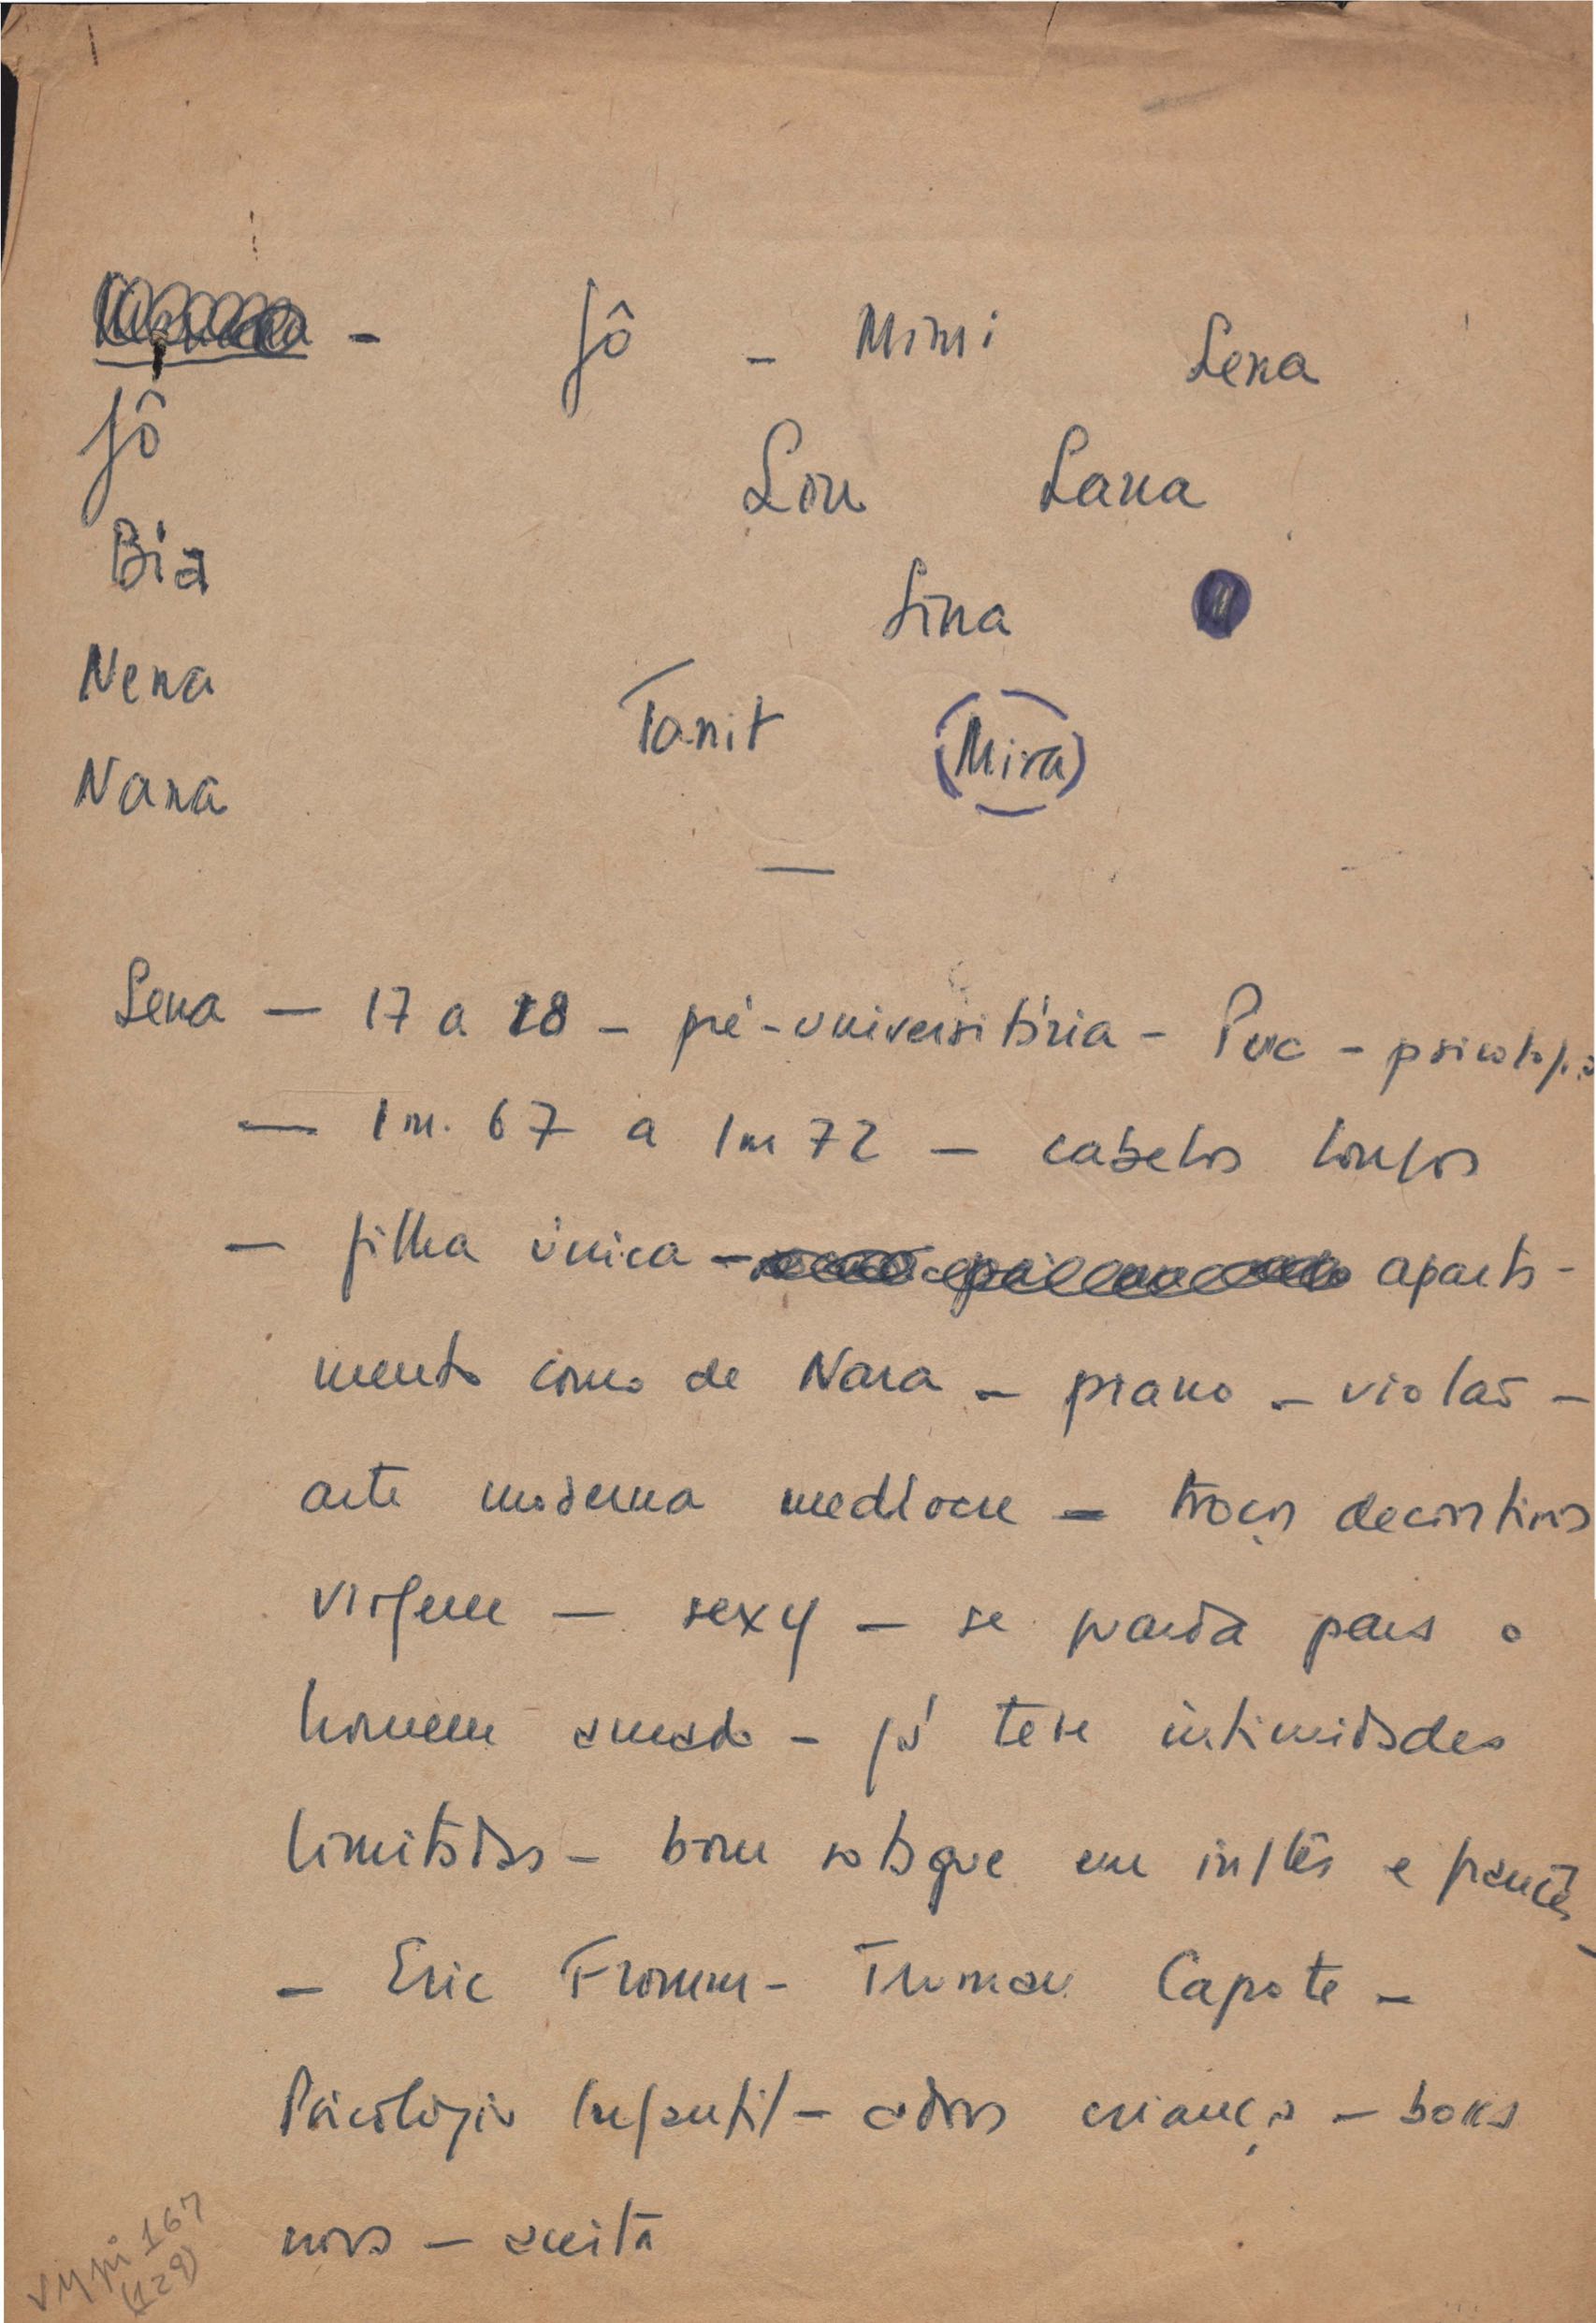 Jô - Mimi Lena
Jô
Lou Lana
Bia
Lina
Nena
Tanit (Mira)
Nana
Lena — 17 a 18 - pré-universitária - Puc - psicologia
— 1 m. 67 a 1 m 72 — cabelos longos
— filha única — aparta-
mento como de Nara - piano - violão -
arte moderna medíocre - troços decorativos
virgem — sexy — se guarda para o
homem amado - já teve intimidades
limitadas - bom sotaque em inglês e francês
- Eric Fromm - Truman Capote -
Psicologia Infantil - adora criança -
nova - aceita
vmpi 167
(129)